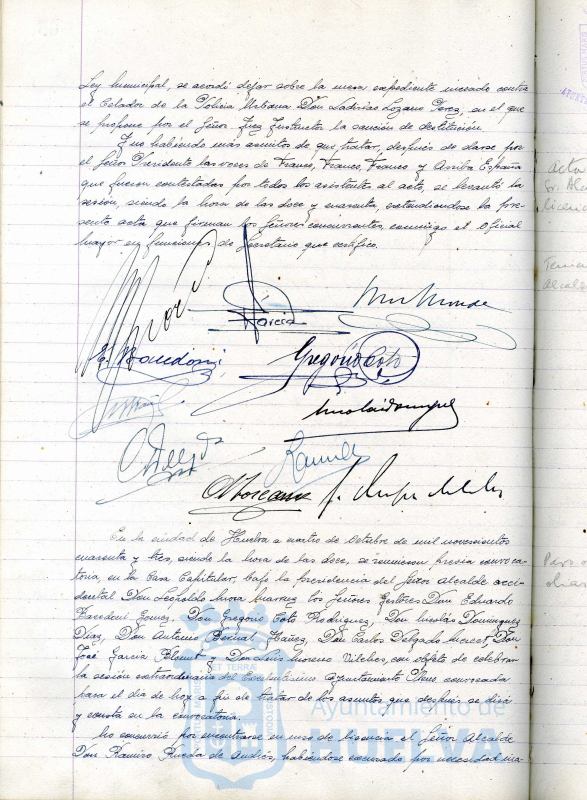 Ley Municipal, se acordó dejar sobre la mesa expediente incoado contra
el Celador de la Policía Urbana Don Ladislao Lozano Perez, en el que
se propone por el Señor Juez Instructor la sanción de destitución.
Y no habiendo más asuntos de que tratar, después de darse por
el Señor Presidente las voces de Franco, Franco, Franco y Arriba España
que fueron contestadas por todos los asistentes al acto, se levantó la
sesión, siendo la hora de las doce y cuarenta, extendiéndose la pre-
sente acta que firman los Señores concurrentes, conmigo el Oficial
Mayor en funciones de Secretario que certifico.
García
Gregorio Coto
En la ciudad de Huelva a cuatro de Octubre de mil novecientos
cuarenta y tres, siendo la hora de las doce, se reunieron previa convoca-
toria, en la Casa Capitular, bajo la presidencia del Señor alcalde acci-
dental Don Leopoldo Mora los Señores Gestores Don Eduardo
Gomez, Don Gregorio Coto Rodriguez, Don Nicolas Dominguez
Diaz, Don Antonio Bernal Ibañez, Don Carlos Delgado Don
José García y Don Luis Moreno Vilches, con objeto de celebrar
la sesión extraordinaria del Excelentísimo Ayuntamiento Pleno convocada
para el día de hoy a fin de tratar de los asuntos que después se dirá
y consta en la convocatoria.
No concurrió por encontrarse en uso de licencia el Señor Alcalde
Don Ramiro Rueda de Andrés, habiéndose excusado por necesidad ina-
Ayuntamiento de
HUELVA
acta
Sr. Alca
licencia